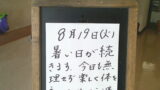 8月19日(火)
暑い日が続
きます。今日も無
理せず楽しく体を